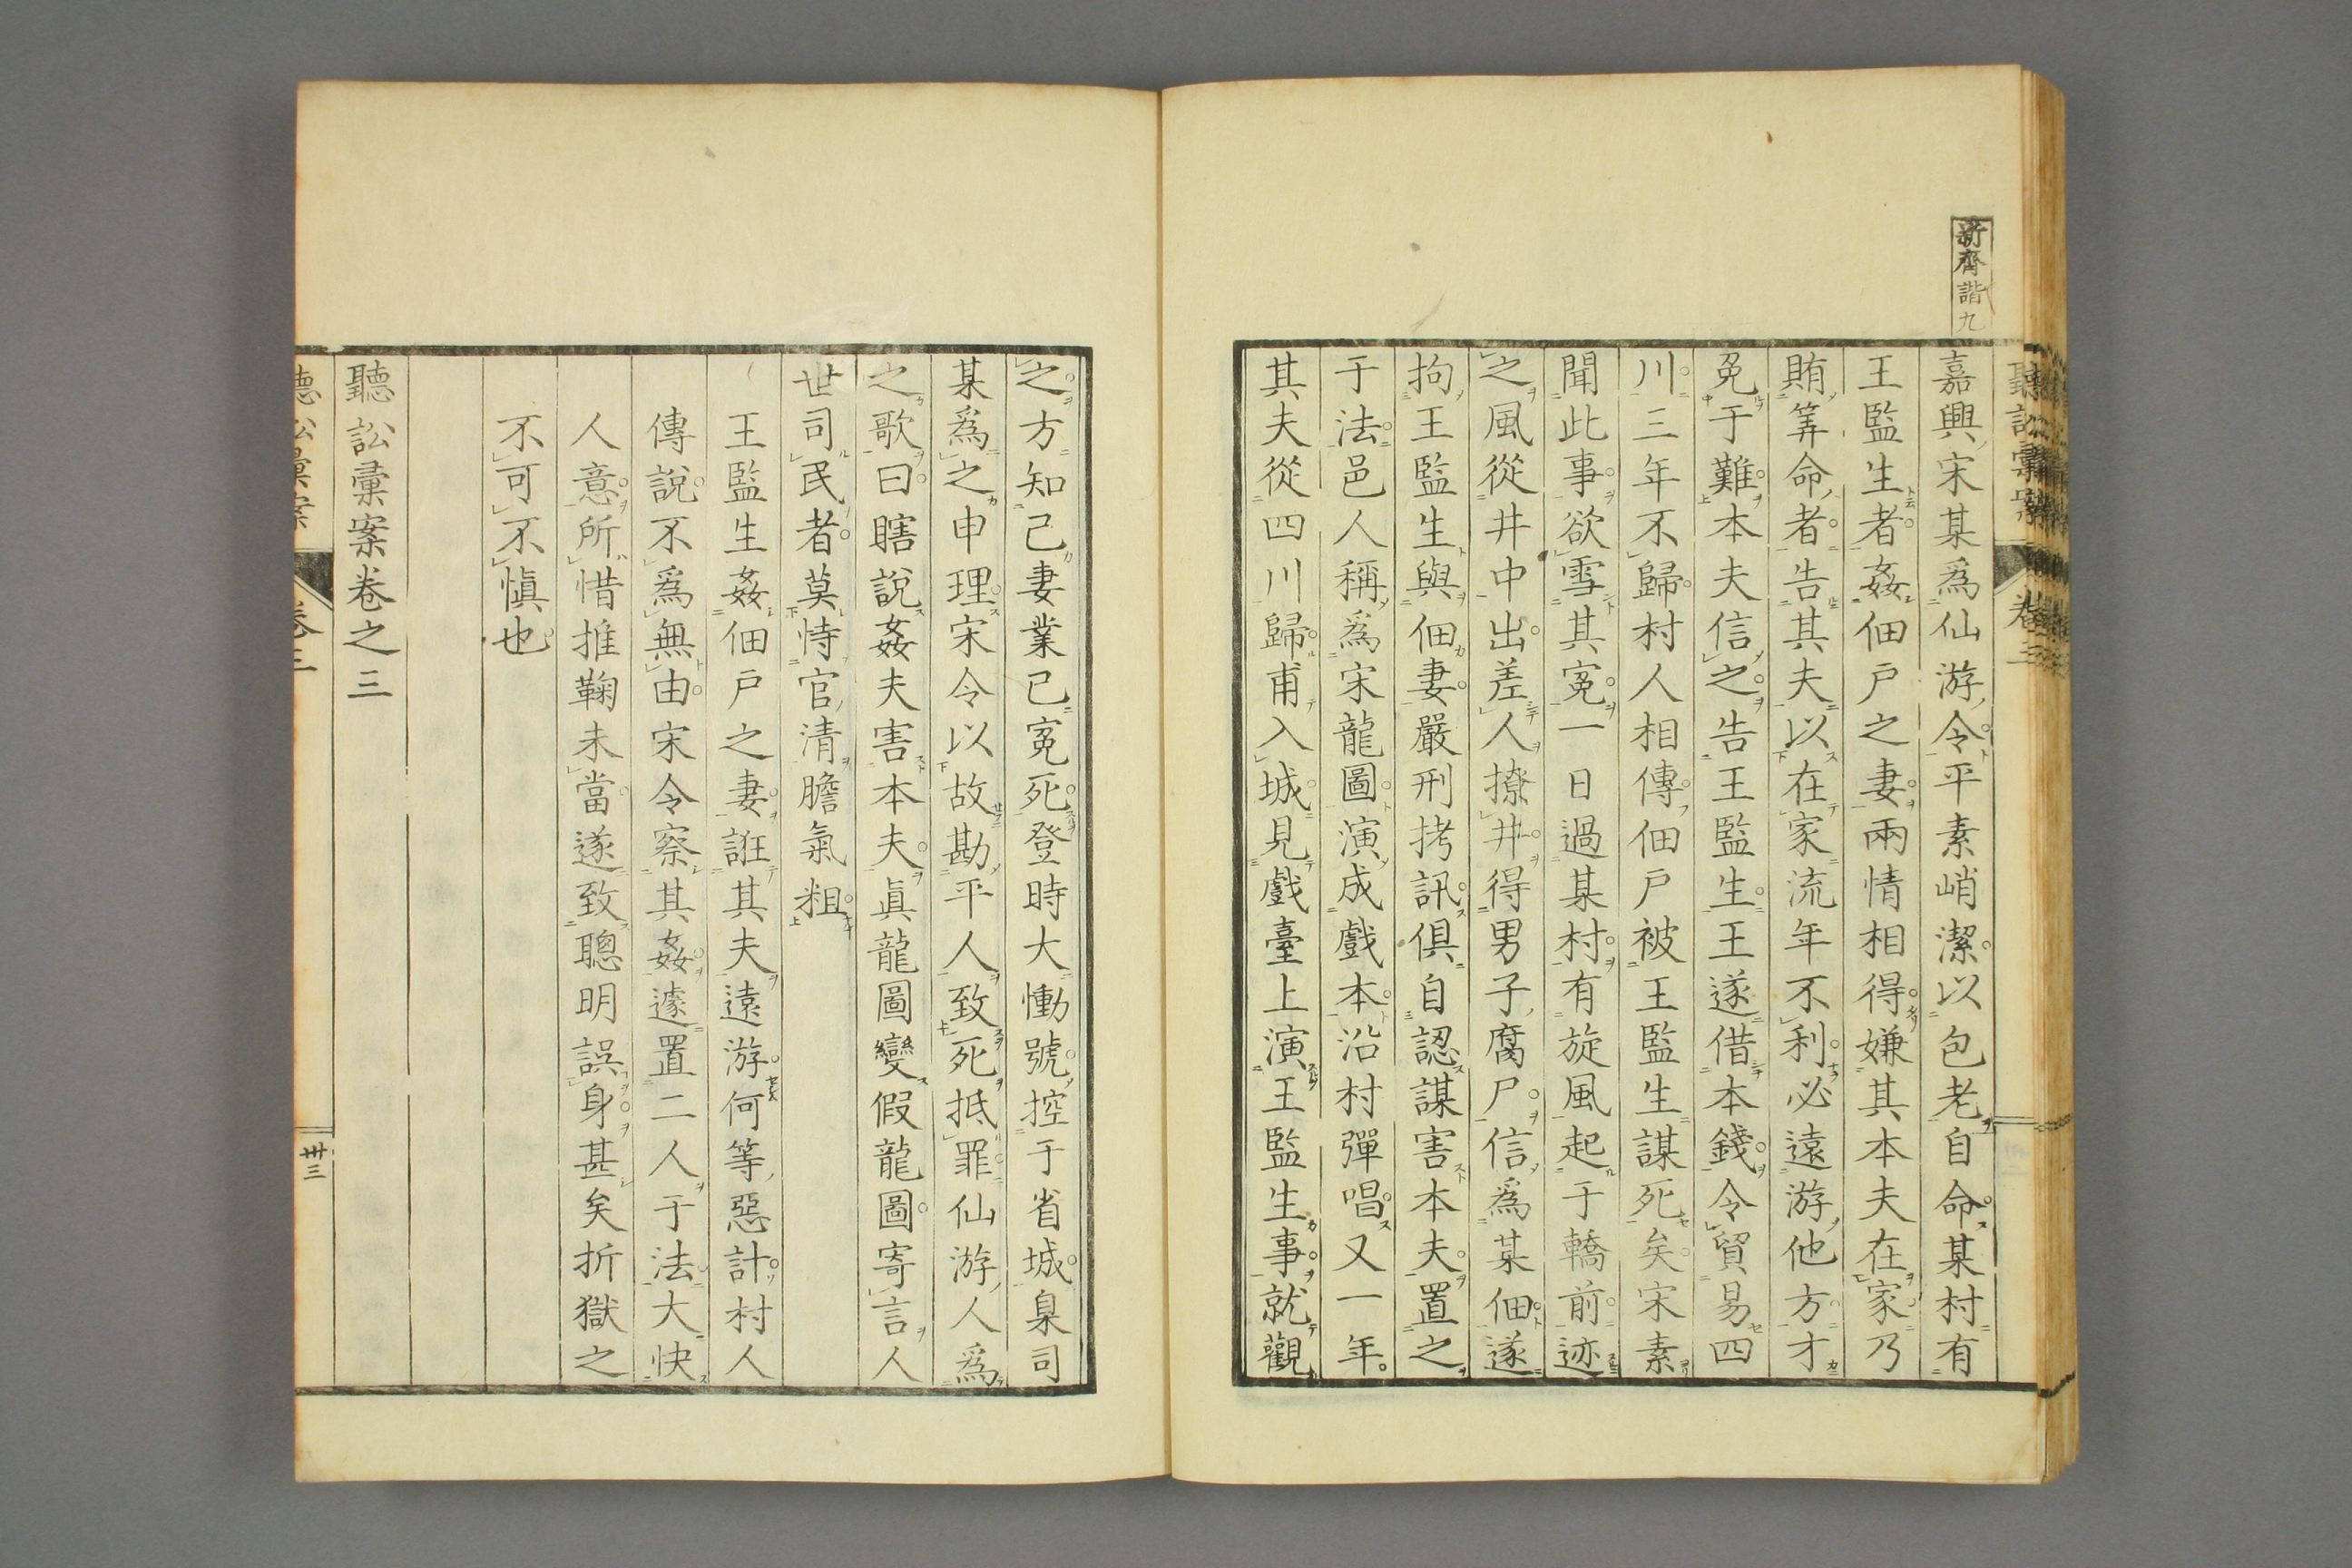 新齊諧九
嘉興宋某爲仙游令平素峭潔以包老自命某村有
王監生者姦佃戸之妻兩情相得嫌其本夫在家乃
賄筭命者告其夫以在家流年不利必遠游他方才
免于難本夫信之告王監生王遂借本錢令貿易四
川三年不歸村人相傳佃戸被王監生謀死矣宋素
聞此事欲雪其冤一日過某村有旋風起于轎前迹
之風從井中出差人撩井得男子腐尸信爲某佃遂
拘王監生與佃妻嚴刑拷訊俱自認謀害本夫置之
于法邑人稱爲宋龍圖演成戲本沿村彈唱又一年
其夫從四川歸甫入城見戲臺上演王監生事就觀
之方知己妻業已冤死登時大慟號控于省城臬司
某爲之申理宋令以故勘平人致死抵罪仙游人爲
之歌曰瞎說姦夫害本夫眞龍圖變假龍圖寄言人
世司民者莫恃官清膽氣粗
王監生姦佃戸之妻誑其夫遠游何等惡計村人
傳說不爲無由宋令察其姦遽置二人于法大快
人意所惜推鞠未當遂致聰明誤身甚矣折獄之
不可不愼也
聽訟彙案卷之三
卅三